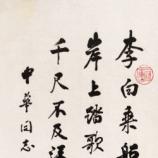 李白乘船
岸上踏歌
千尺不及汪
中华同志